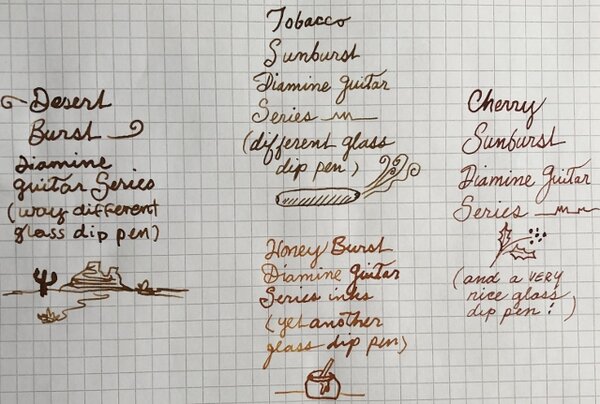 Desert
Burst
Diamine
guitar Series
(way different
glass dip pen)
Tobacco
Sunburst
Diamine Guitar
Series
(different glass
dip pen)
Honey Burst
Diamine guitar
Series inks
(yet another
glass dip pen)
Cherry
Sunburst
Diamine Guitar
Series
(and a VERY
nice glass
dip pen! )